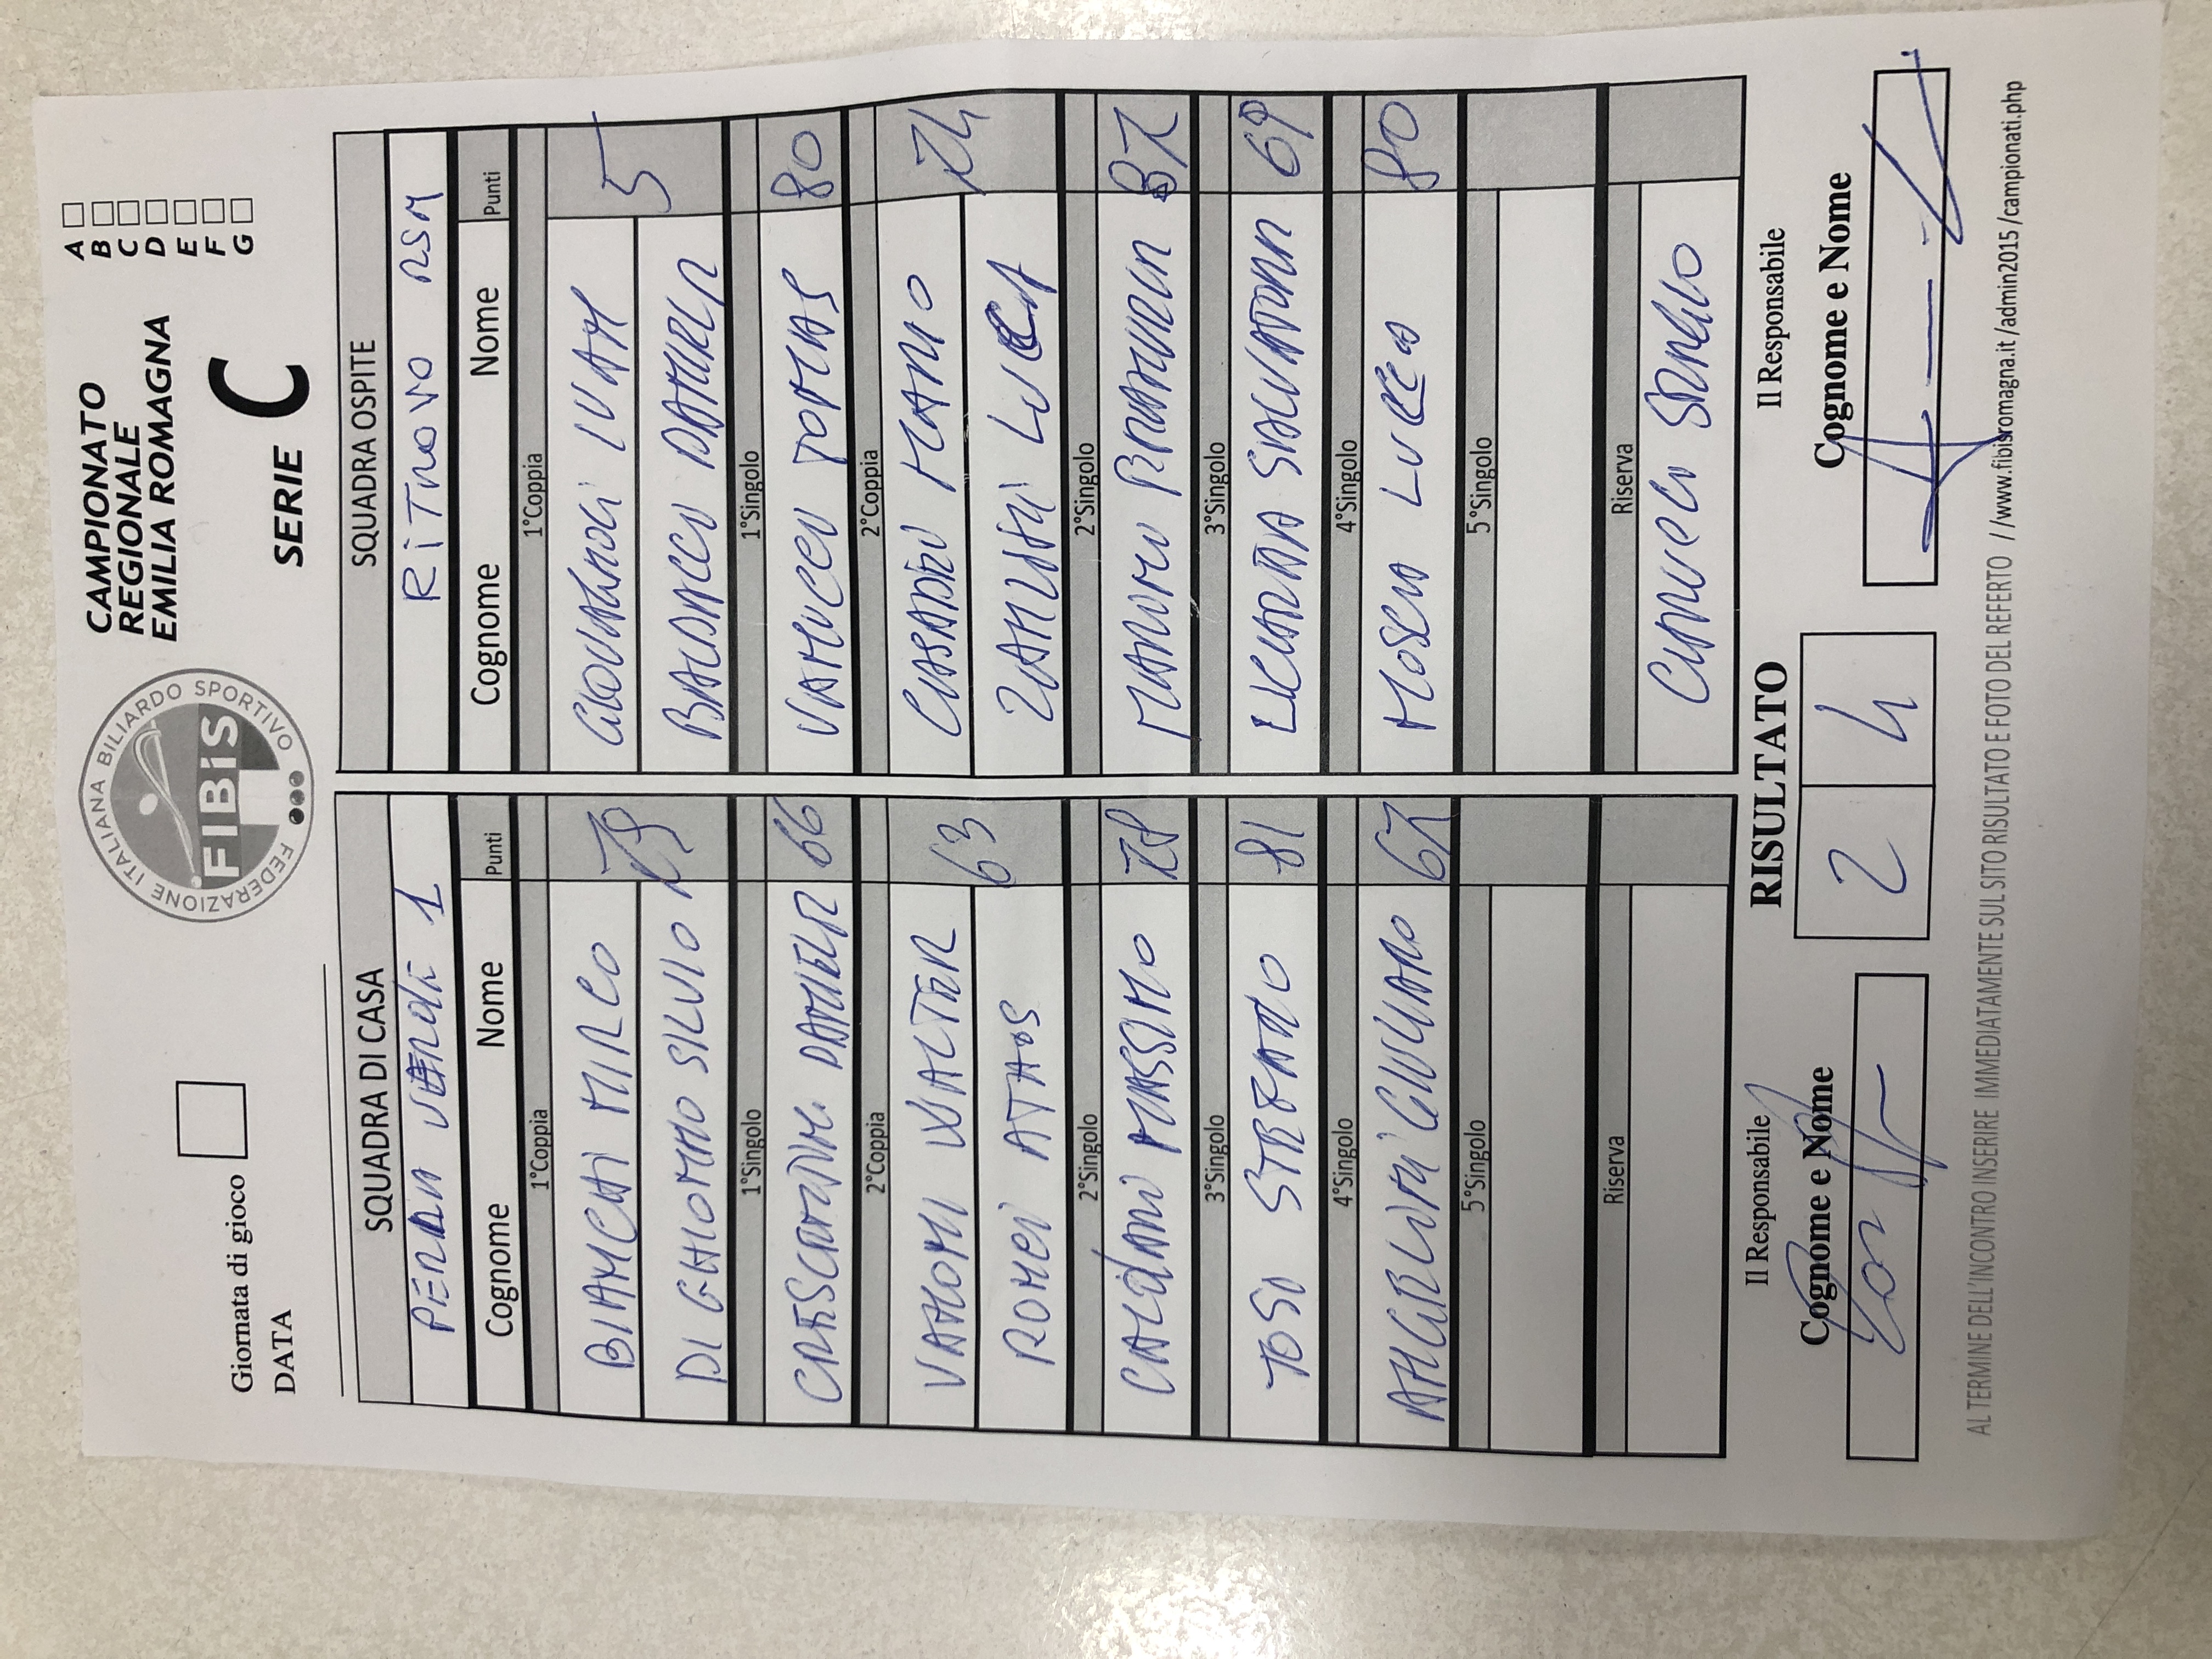 Giornata di gioco
DATA
FEDERAZIONE ITALIANA BILIARDO SPORTIVO
FIBiS
CAMPIONATO
REGIONALE
EMILIA ROMAGNA
SERIE C
A
B
C
D
E
F
G
SQUADRA DI CASA
1
Cognome Nome Punti
1°Coppia
BIANCHI MIRCO
DI GHIONNO SILVIO
1°Singolo
DANIELE 66
2°Coppia
VANONI WALTER
63
ROMEI ATHOS
2°Singolo
MASSIMO
3°Singolo
TOSI STEFANO 81
4°Singolo
GIULIANO
5°Singolo
Riserva
SQUADRA OSPITE
RITROVO RSM
Cognome Nome Punti
1°Coppia
IVAN
5
BALDACCI DANIELE
1°Singolo
VANUCCI TOMAS 80
2°Coppia
CASADEI MARIO
LUCA
2°Singolo
3°Singolo
SALVATORE 69
4°Singolo
MOSCA LUCA 80
5°Singolo
Riserva
Il Responsabile
Cognome e Nome
RISULTATO
2 4
Il Responsabile
Cognome e Nome
AL TERMINE DELL'INCONTRO INSERIRE IMMEDIATAMENTE SUL SITO RISULTATO E FOTO DEL REFERTO //www.fibisromagna.it/admin2015/campionati.php